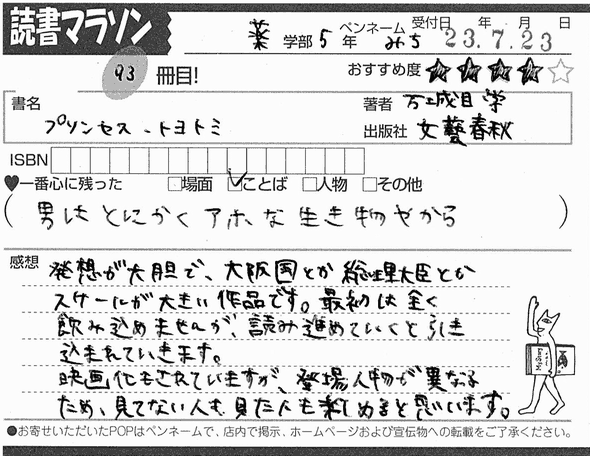 読書マラソン
薬 学部 5 年 ペンネーム みち 受付日 年 月 日 23.7.23
93 冊目!
おすすめ度 ★★★★☆
書名 プリンセス・トヨトミ
著者 万城目 学
出版社 文藝春秋
ISBN
♥一番心に残った □場面 ☑ことば □人物 □その他
(男はとにかくアホな生き物やから)
感想
発想が大胆で、大阪国とか総理大臣とか
スケールが大きい作品です。最初は全く
飲み込めませんが、読み進めていくと引き
込まれていきます。
映画化もされていますが、登場人物が異なる
ため、見てない人も見た人も楽しめると思います。
●お寄せいただいたPOPはペンネームで、店内で掲示、ホームページおよび宣伝物への転載をご了承ください。